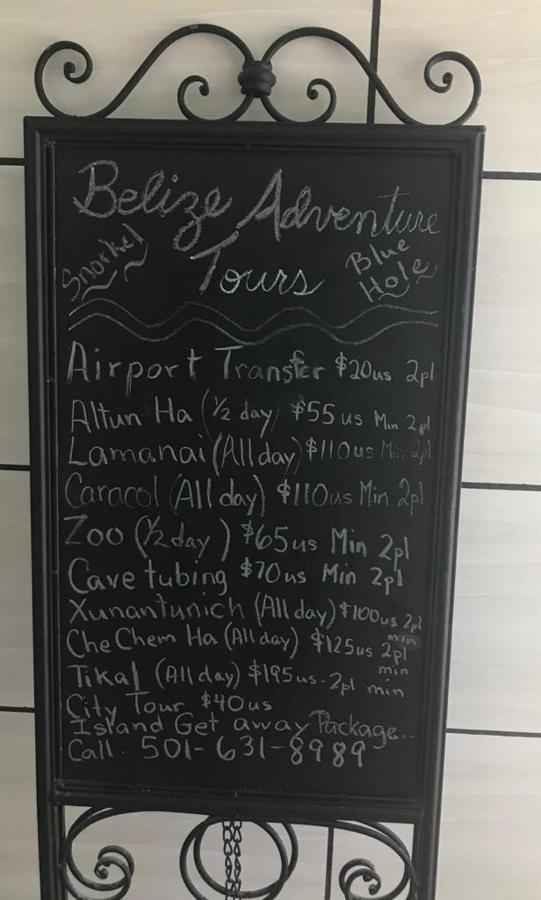 Belize Adventure
Tours
Snorkel
Blue
Hole
Airport Transfer $20us 2pl
Altun Ha (1/2 day) $55us Min 2pl
Lamanai (All day) $110us Min 2pl
Caracol (All day) $110us Min 2pl
Zoo (1/2 day) $65us Min 2pl
Cave tubing $70us Min 2pl
Xunantunich (All day) $100us 2pl min
Che Chem Ha (All day) $125us 2pl min
Tikal (All day) $195us - 2pl min
City Tour $40us
Island Get away Package..
Call. 501-631-8989